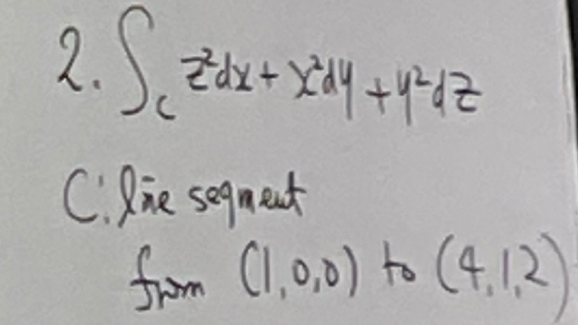 2. ∫_C z²dx + x²dy + y²dz
C: line segment
from (1,0,0) to (4,1,2)